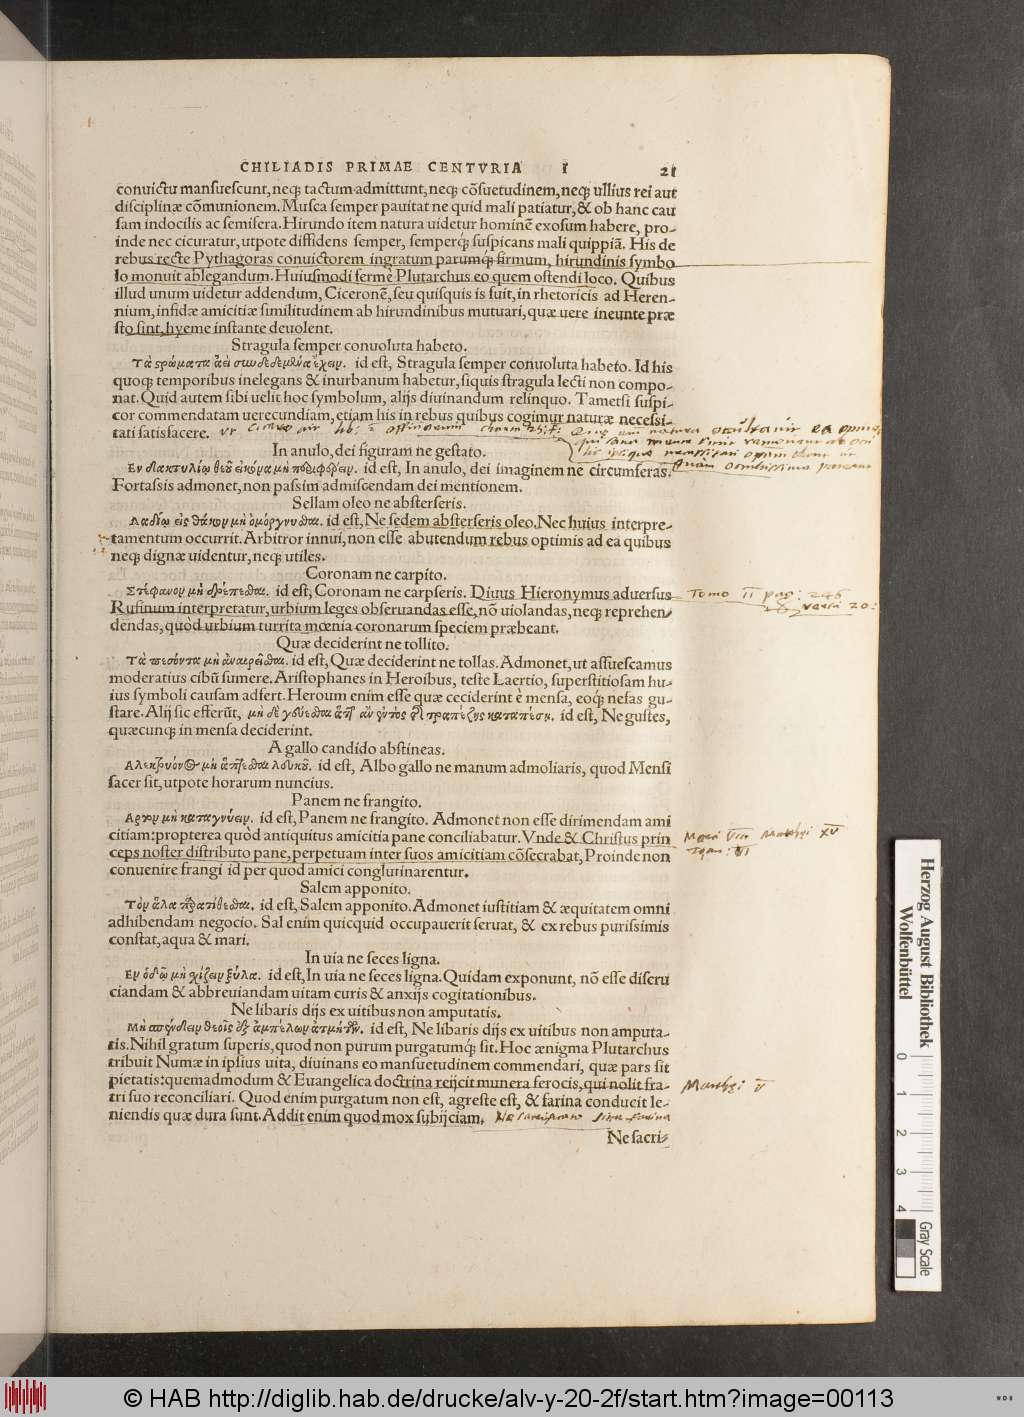 CHILIADIS PRIMAE CENTVRIA I 21
conuictu mansuescunt, neqꝫ tactum admittunt, neqꝫ cõsuetudinem, neqꝫ ullius rei aut
disciplinæ cõmunionem. Musca semper pauitat ne quid mali patiatur, & ob hanc cau
sam indocilis ac semifera. Hirundo item natura uidetur hominẽ exosum habere, pro-
inde nec cicuratur, utpote diffidens semper, semperqꝫ́ suspicans mali quippiã. His de
rebus recte Pythagoras conuictorem ingratum parumqꝫ́ firmum, hirundinis symbo
lo monuit ablegandum. Huiusmodi ferme Plutarchus eo quem ostendi loco. Quibus
illud unum uidetur addendum, Ciceronẽ, seu quisquis is fuit, in rhetoricis ad Heren-
nium, infidæ amicitiæ similitudinem ab hirundinibus mutuari, quæ uere ineunte præ
sto sint, hyeme instante deuolent.
Stragula semper conuoluta habeto.
Τὰ στρώματα ἀεὶ συνδεδεμένα ἔχειν. id est, Stragula semper conuoluta habeto. Id his
quoqꝫ temporibus inelegans & inurbanum habetur, siquis stragula lecti non compo-
nat. Quid autem sibi uelit hoc symbolum, alijs diuinandum relinquo. Tametsi suspi-
cor commendatam uerecundiam, etiam his in rebus quibus cogimur naturæ necessi-
tati satisfacere. ut
In anulo, dei figuram ne gestato.
Εν δακτυλίῳ θεοῦ εἰκόνα μὴ περιφέρειν. id est, In anulo, dei imaginem ne circumferas.
Fortassis admonet, non passim admiscendam dei mentionem.
Sellam oleo ne absterseris.
Λαδίῳ εἰς θάκον μὴ ὀμόργνυσθαι. id est, Ne sedem absterseris oleo. Nec huius interpre-
tamentum occurrit. Arbitror innui, non esse abutendum rebus optimis ad ea quibus
neqꝫ dignæ uidentur, neqꝫ utiles.
Coronam ne carpito.
Στέφανον μὴ δρέπεσθαι. id est, Coronam ne carpseris. Diuus Hieronymus aduersus
Tomo II pag: 246
Rufinum interpretatur, urbium leges obseruandas esse, nõ uiolandas, neqꝫ reprehen-
versu 20:
dendas, quòd urbium turrita mœnia coronarum speciem præbeant.
Quæ deciderint ne tollito.
Τὰ πεσόντα μὴ ἀναιρεῖσθαι. id est, Quæ deciderint ne tollas. Admonet, ut assuescamus
moderatius cibũ sumere. Aristophanes in Heroibus, teste Laertio, superstitiosam hu-
ius symboli causam adfert. Heroum enim esse quæ ceciderint è mensa, eoqꝫ́ nefas gu-
stare. Alij sic efferũt, μὴ δὲ γεύεσθαι ἅττ᾽ ἂν ἐντὸς τῆς τραπέζης καταπέσῃ. id est, Ne gustes,
quæcunqꝫ in mensa deciderint.
A gallo candido abstineas.
Αλεκτρυόνος μὴ ἅπτεσθαι λευκοῦ. id est, Albo gallo ne manum admoliaris, quod Mensi
sacer sit, utpote horarum nuncius.
Panem ne frangito.
Αρτον μὴ καταγνύειν. id est, Panem ne frangito. Admonet non esse dirimendam ami
citiam: propterea quòd antiquitus amicitia pane conciliabatur. Vnde & Christus prin
Matthęi XV
ceps noster distributo pane, perpetuam inter suos amicitiam cõsecrabat, Proinde non
Ioan: VI
conuenire frangi id per quod amici conglutinarentur.
Salem apponito.
Τὸν ἅλα παρατίθεσθαι. id est, Salem apponito. Admonet iustitiam & æquitatem omni
adhibendam negocio. Sal enim quicquid occupauerit seruat, & ex rebus purissimis
constat, aqua & mari.
In uia ne seces ligna.
Εν ὁδῷ μὴ σχίζειν ξύλα. id est, In uia ne seces ligna. Quidam exponunt, nõ esse discru
ciandam & abbreuiandam uitam curis & anxijs cogitationibus.
Ne libaris dijs ex uitibus non amputatis.
Μὴ σπένδειν θεοῖς ἐξ ἀμπέλων ἀτμήτων. id est, Ne libaris dijs ex uitibus non amputa-
tis. Nihil gratum superis, quod non purum purgatumqꝫ́ sit. Hoc ænigma Plutarchus
tribuit Numæ in ipsius uita, diuinans eo mansuetudinem commendari, quæ pars sit
pietatis: quemadmodum & Euangelica doctrina reijcit munera ferocis, qui nolit fra-
Matthęi V
tri suo reconciliari. Quod enim purgatum non est, agreste est, & farina conducit le-
niendis quæ dura sunt. Addit enim quod mox subijciam. Ne sacrificato sine farina
Ne sacri-
Herzog August Bibliothek
Wolfenbüttel
0 1 2 3 4
Gray Scale
© HAB http://diglib.hab.de/drucke/alv-y-20-2f/start.htm?image=00113